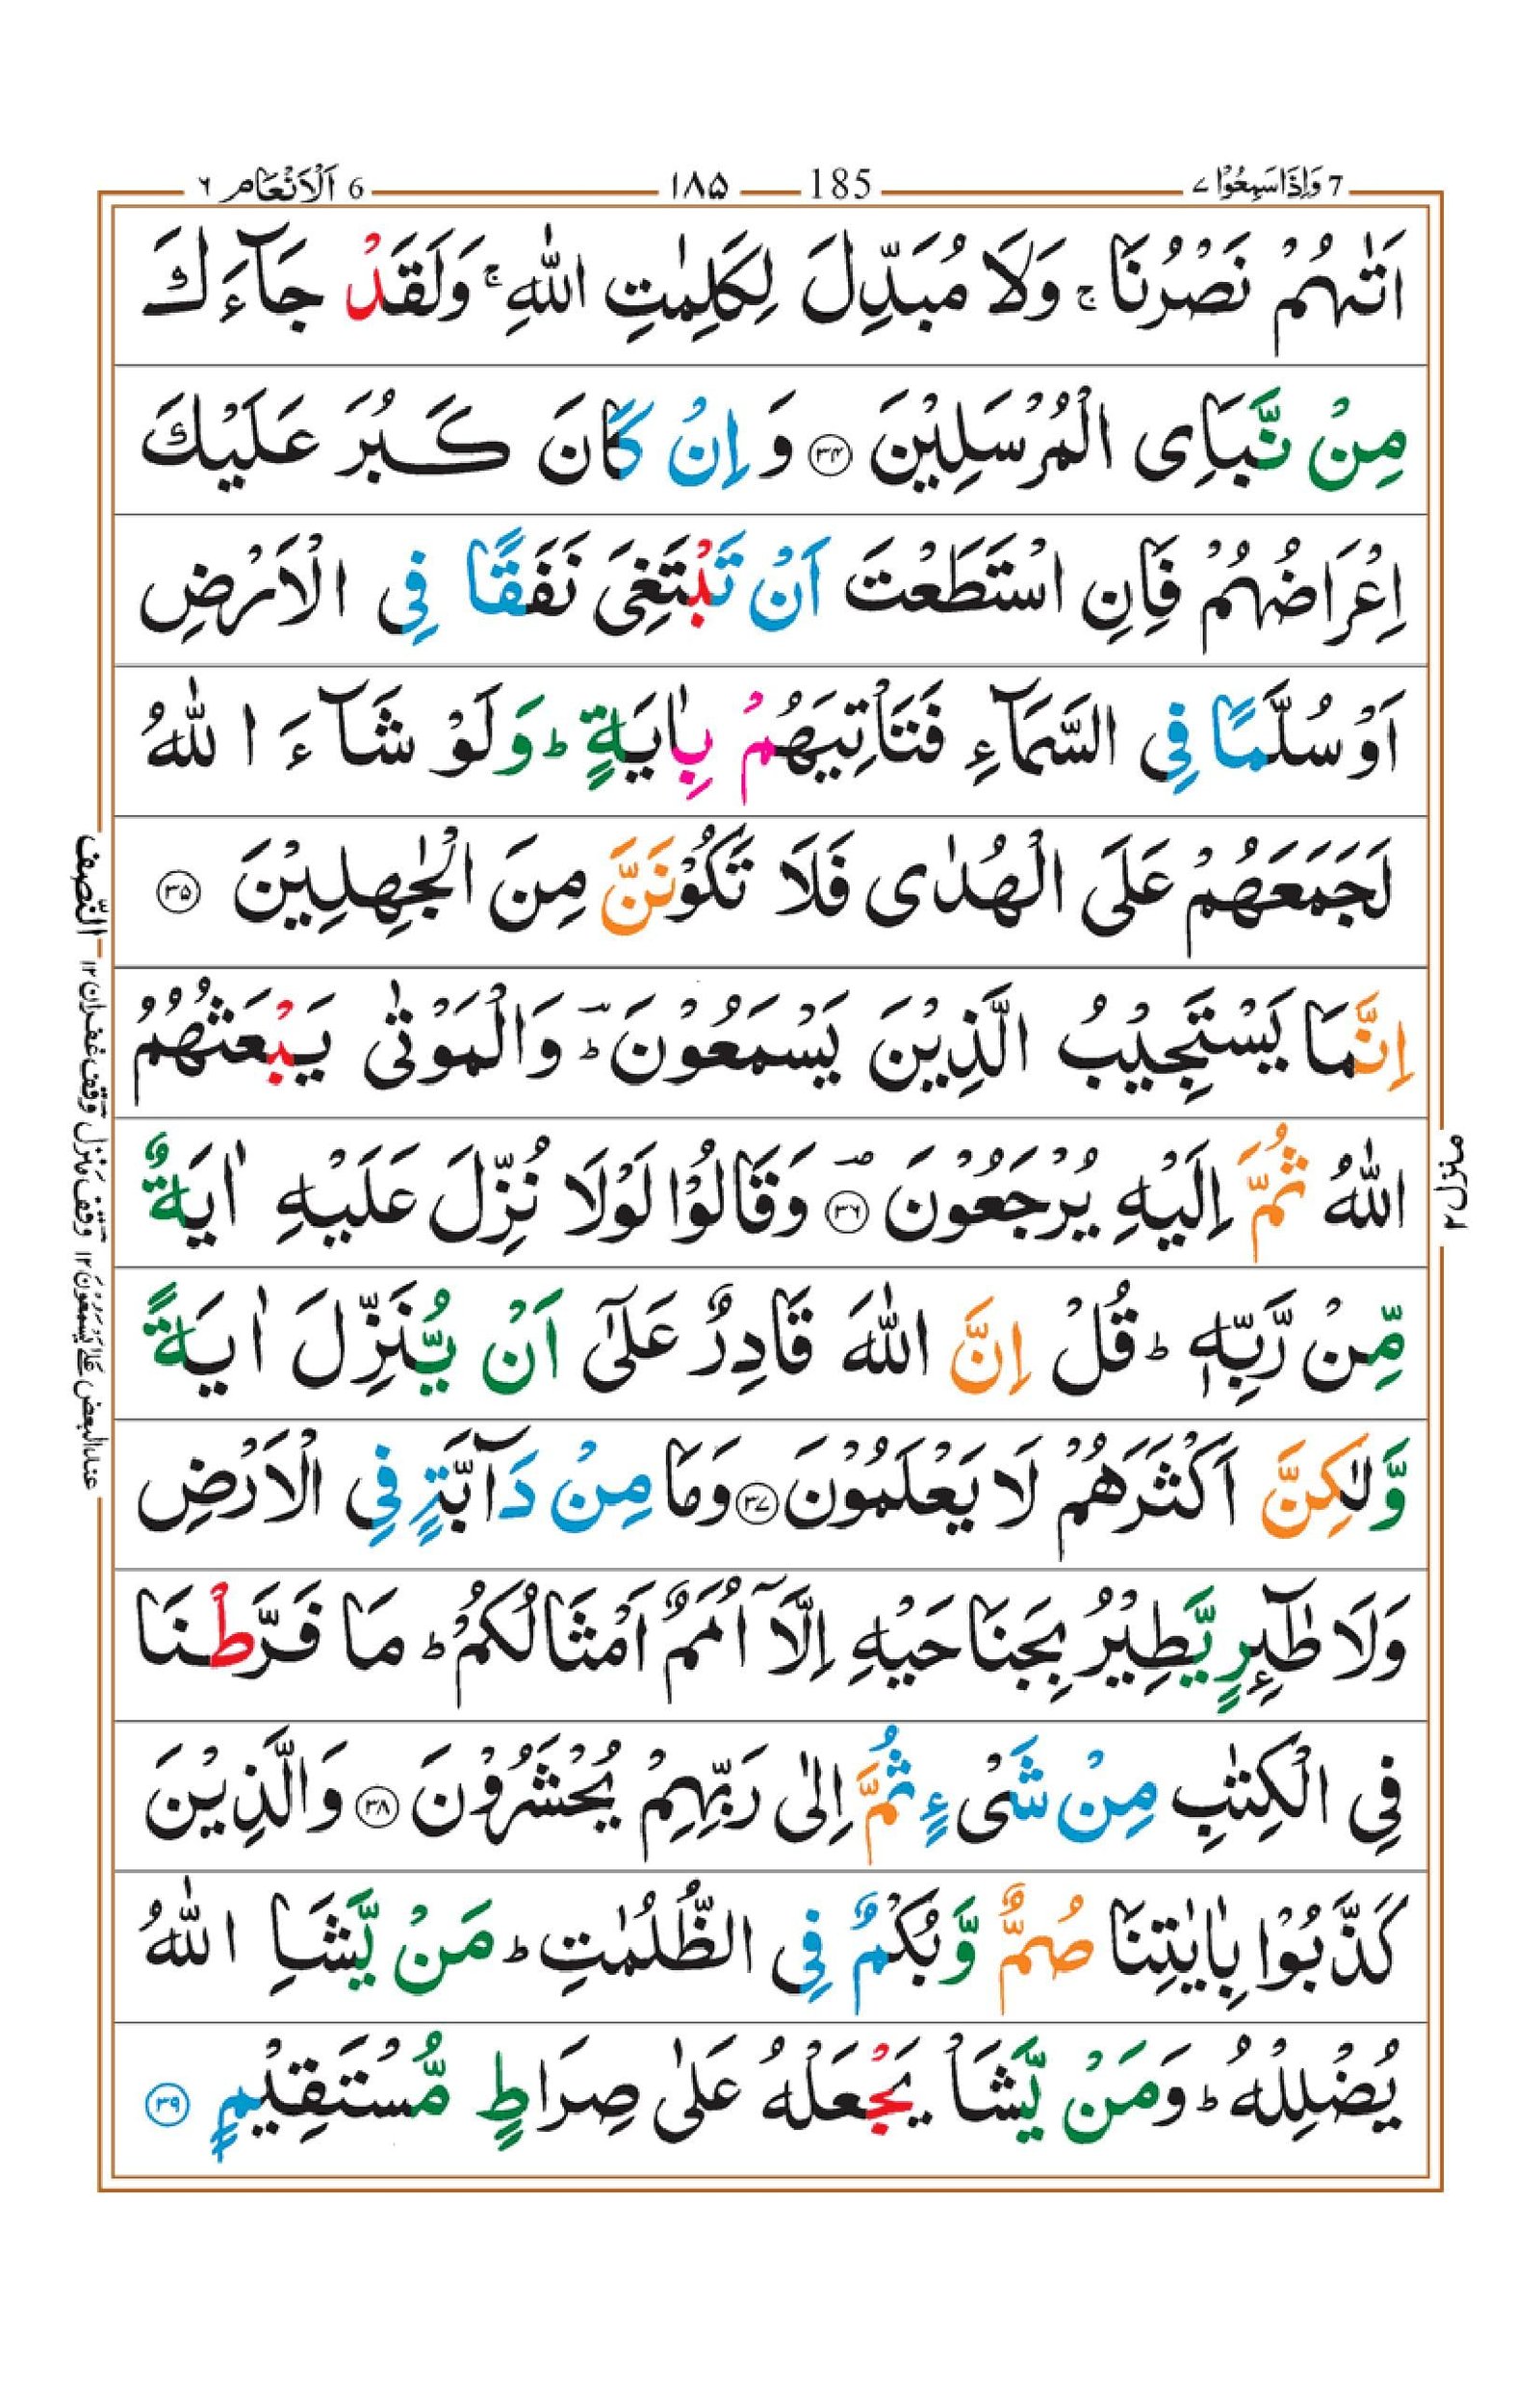 7 وَاِذَاسَمِعُوْا ٧ 185 ١٨٥ 6 اَلْاَنْعَام ٦
اَتٰىهُمْ نَصْرُنَا ۚ وَلَا مُبَدِّلَ لِكَلِمٰتِ اللّٰهِ ۚ وَلَقَدْ جَآءَكَ
مِنْ نَّبَاِى الْمُرْسَلِيْنَ ﴿۳۴﴾ وَ اِنْ كَانَ كَبُرَ عَلَيْكَ
اِعْرَاضُهُمْ فَاِنِ اسْتَطَعْتَ اَنْ تَبْتَغِىَ نَفَقًا فِى الْاَرْضِ
اَوْ سُلَّمًا فِى السَّمَآءِ فَتَاْتِيَهُمْ بِاٰيَةٍ ؕ وَلَوْ شَآءَ اللّٰهُ
لَجَمَعَهُمْ عَلَى الْهُدٰى فَلَا تَكُوْنَنَّ مِنَ الْجٰهِلِيْنَ ﴿۳۵﴾
اِنَّمَا يَسْتَجِيْبُ الَّذِيْنَ يَسْمَعُوْنَ ؔؕ وَالْمَوْتٰى يَبْعَثُهُمُ
اللّٰهُ ثُمَّ اِلَيْهِ يُرْجَعُوْنَ ﴿۳۶﴾ؔ وَقَالُوْا لَوْلَا نُزِّلَ عَلَيْهِ اٰيَةٌ
مِّنْ رَّبِّهٖ ؕ قُلْ اِنَّ اللّٰهَ قَادِرٌ عَلٰٓى اَنْ يُّنَزِّلَ اٰيَةً
وَّلٰكِنَّ اَكْثَرَهُمْ لَا يَعْلَمُوْنَ ﴿۳۷﴾ وَمَا مِنْ دَآبَّةٍ فِى الْاَرْضِ
وَلَا طٰٓئِرٍ يَّطِيْرُ بِجَنَاحَيْهِ اِلَّاۤ اُمَمٌ اَمْثَالُكُمْ ؕ مَا فَرَّطْنَا
فِى الْكِتٰبِ مِنْ شَىْءٍ ثُمَّ اِلٰى رَبِّهِمْ يُحْشَرُوْنَ ﴿۳۸﴾ وَالَّذِيْنَ
كَذَّبُوْا بِاٰيٰتِنَا صُمٌّ وَّبُكْمٌ فِى الظُّلُمٰتِ ؕ مَنْ يَّشَاِ اللّٰهُ
يُضْلِلْهُ ؕ وَمَنْ يَّشَاْ يَجْعَلْهُ عَلٰى صِرَاطٍ مُّسْتَقِيْمٍ ﴿۳۹﴾
النّصف
وقف غفران ١٢
وقف منزل
عند البعض علے يسمعون ١٢
منزل ٢